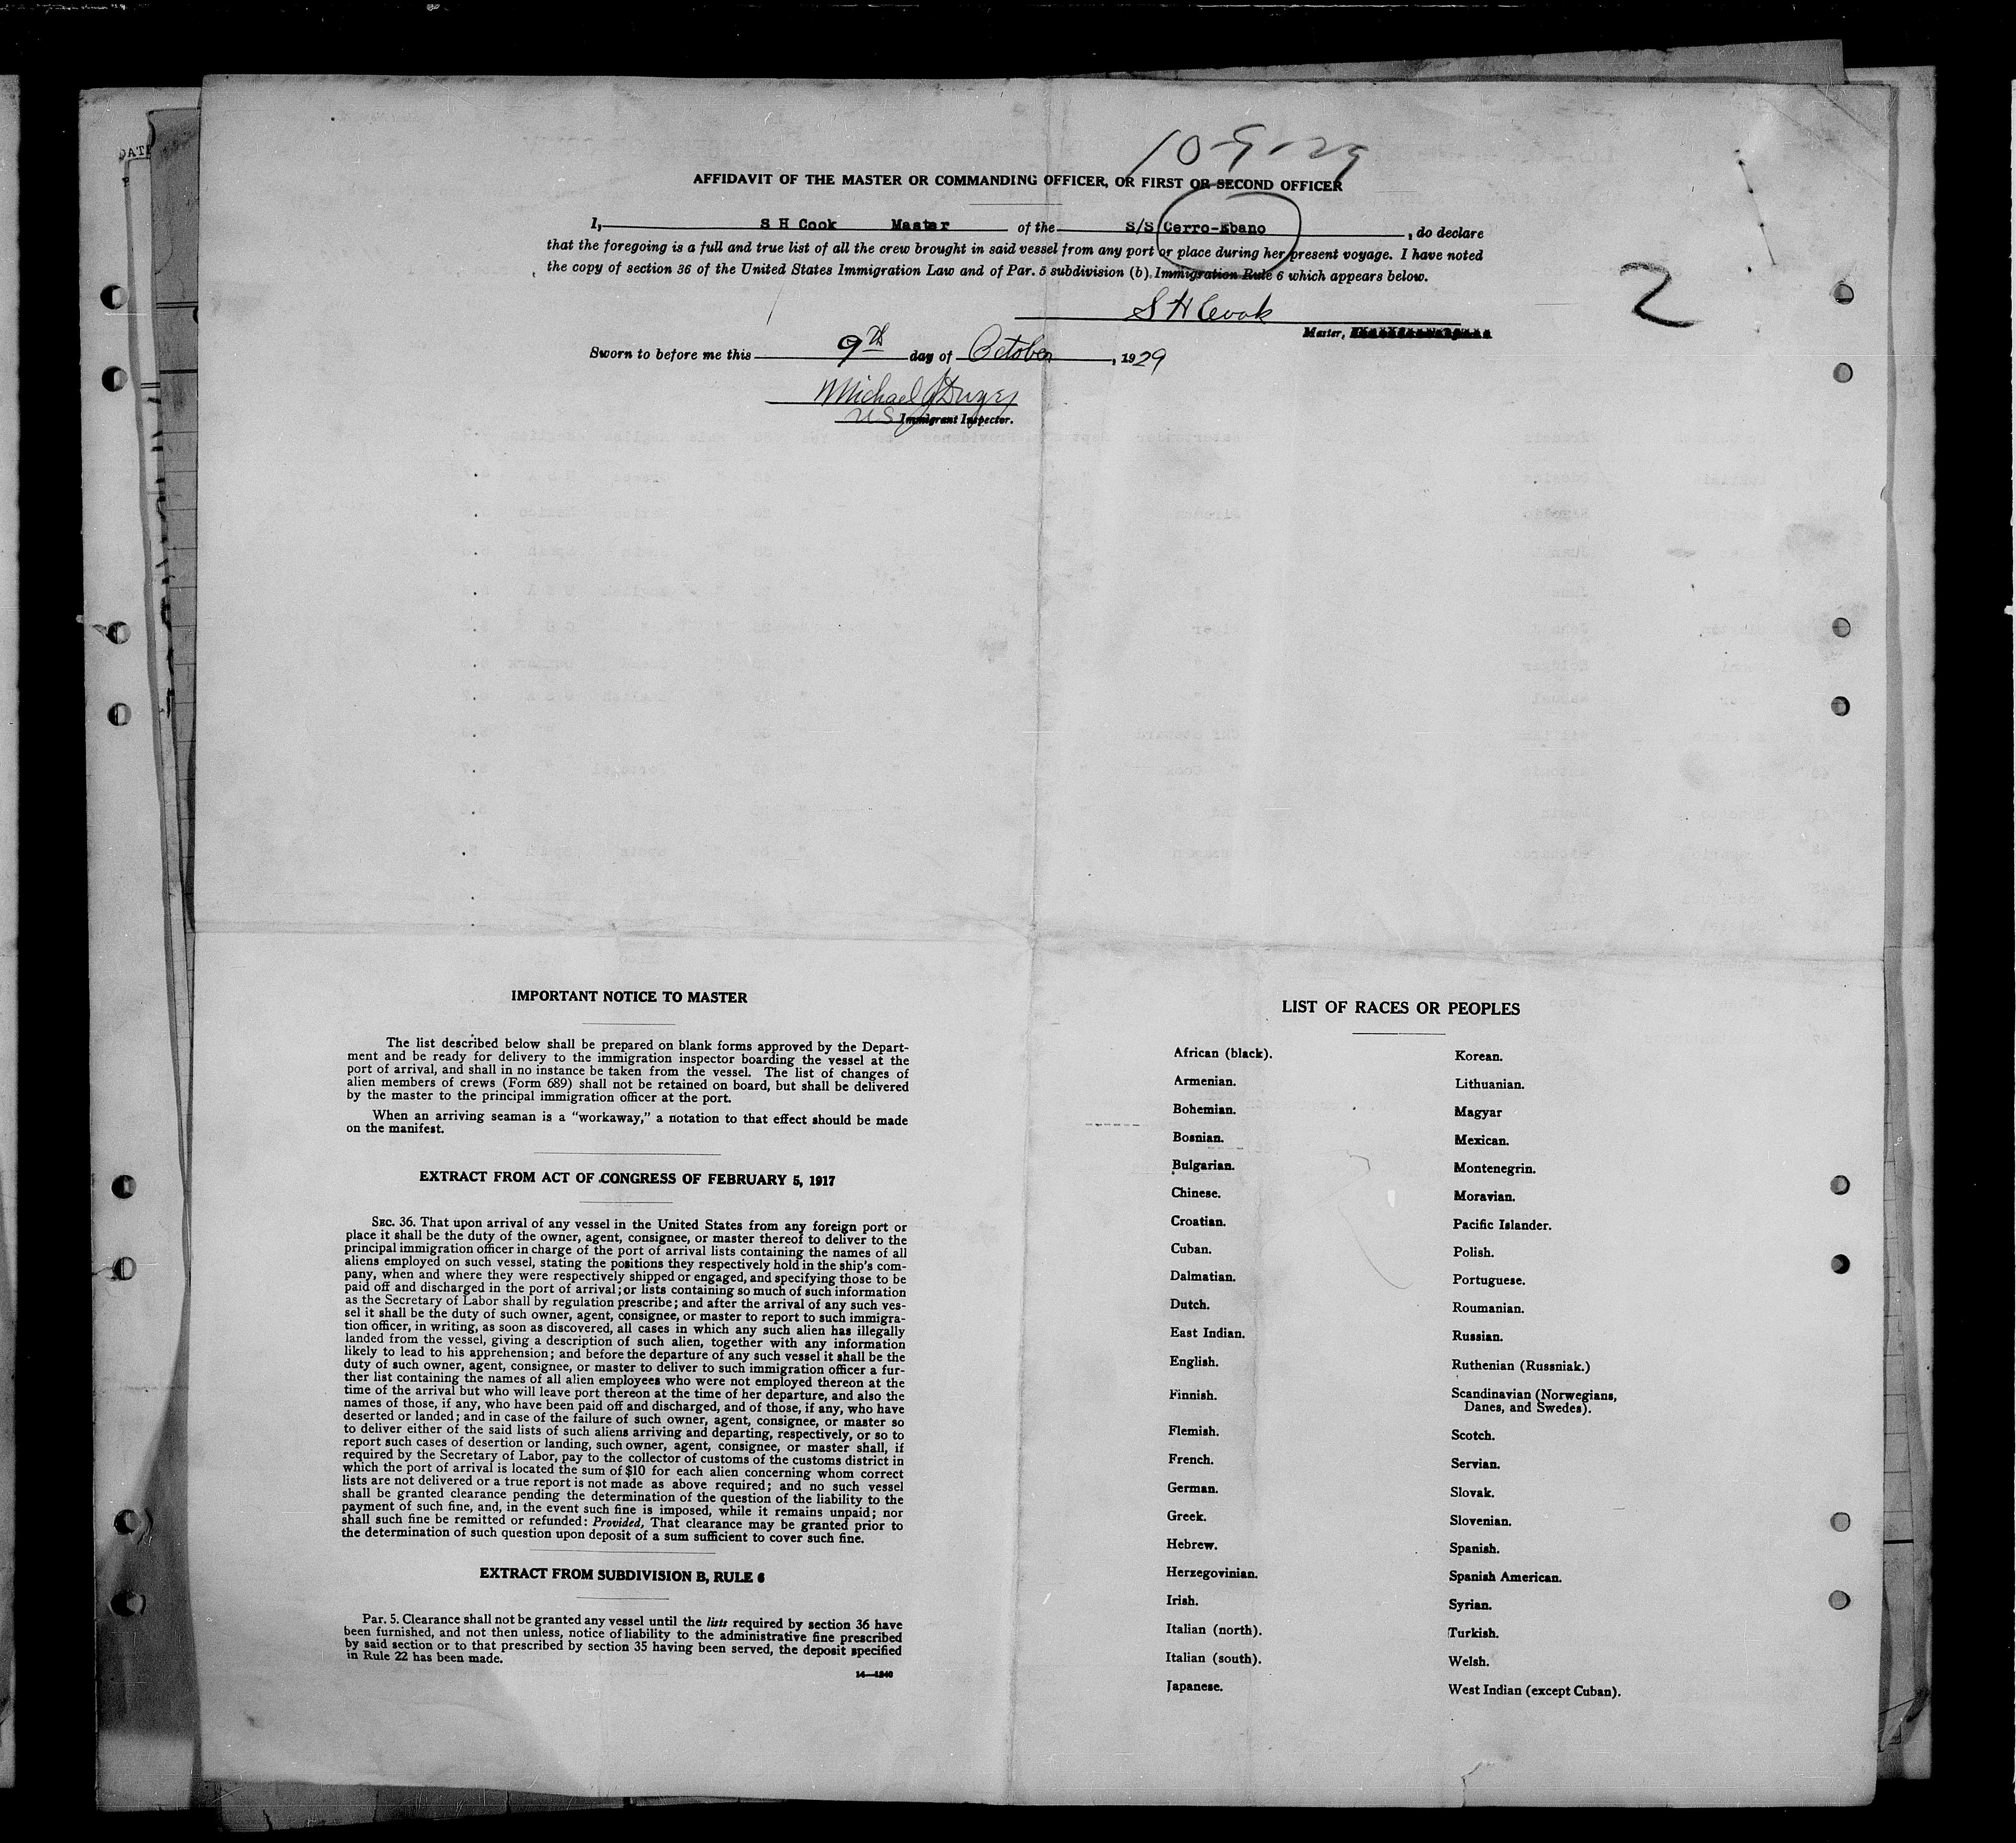 10-9-29
AFFIDAVIT OF THE MASTER OR COMMANDING OFFICER, OR FIRST OR SECOND OFFICER
I, S H Cook Master of the S/S Cerro-Ebano, do declare
that the foregoing is a full and true list of all the crew brought in said vessel from any port or place during her present voyage. I have noted
the copy of section 36 of the United States Immigration Law and of Par. 5 subdivision (b), Immigration Rule 6 which appears below.
2
S H Cook
Master,
Sworn to before me this 9th day of October, 1929
Michael J
US Immigrant Inspector.
IMPORTANT NOTICE TO MASTER
The list described below shall be prepared on blank forms approved by the Depart-
ment and be ready for delivery to the immigration inspector boarding the vessel at the
port of arrival, and shall in no instance be taken from the vessel. The list of changes of
alien members of crews (Form 689) shall not be retained on board, but shall be delivered
by the master to the principal immigration officer at the port.
When an arriving seaman is a "workaway," a notation to that effect should be made
on the manifest.
EXTRACT FROM ACT OF CONGRESS OF FEBRUARY 5, 1917
SEC. 36. That upon arrival of any vessel in the United States from any foreign port or
place it shall be the duty of the owner, agent, consignee, or master thereof to deliver to the
principal immigration officer in charge of the port of arrival lists containing the names of all
aliens employed on such vessel, stating the positions they respectively hold in the ship's com-
pany, when and where they were respectively shipped or engaged, and specifying those to be
paid off and discharged in the port of arrival; or lists containing so much of such information
as the Secretary of Labor shall by regulation prescribe; and after the arrival of any such ves-
sel it shall be the duty of such owner, agent, consignee, or master to report to such immigra-
tion officer, in writing, as soon as discovered, all cases in which any such alien has illegally
landed from the vessel, giving a description of such alien, together with any information
likely to lead to his apprehension; and before the departure of any such vessel it shall be the
duty of such owner, agent, consignee, or master to deliver to such immigration officer a fur-
ther list containing the names of all alien employees who were not employed thereon at the
time of the arrival but who will leave port thereon at the time of her departure, and also the
names of those, if any, who have been paid off and discharged, and of those, if any, who have
deserted or landed; and in case of the failure of such owner, agent, consignee, or master so
to deliver either of the said lists of such aliens arriving and departing, respectively, or so to
report such cases of desertion or landing, such owner, agent, consignee, or master shall, if
required by the Secretary of Labor, pay to the collector of customs of the customs district in
which the port of arrival is located the sum of $10 for each alien concerning whom correct
lists are not delivered or a true report is not made as above required; and no such vessel
shall be granted clearance pending the determination of the question of the liability to the
payment of such fine, and, in the event such fine is imposed, while it remains unpaid; nor
shall such fine be remitted or refunded: Provided, That clearance may be granted prior to
the determination of such question upon deposit of a sum sufficient to cover such fine.
EXTRACT FROM SUBDIVISION B, RULE 6
Par. 5. Clearance shall not be granted any vessel until the lists required by section 36 have
been furnished, and not then unless, notice of liability to the administrative fine prescribed
by said section or to that prescribed by section 35 having been served, the deposit specified
in Rule 22 has been made.
14—1240
LIST OF RACES OR PEOPLES
African (black).
Armenian.
Bohemian.
Bosnian.
Bulgarian.
Chinese.
Croatian.
Cuban.
Dalmatian.
Dutch.
East Indian.
English.
Finnish.
Flemish.
French.
German.
Greek.
Hebrew.
Herzegovinian.
Irish.
Italian (north).
Italian (south).
Japanese.
Korean.
Lithuanian.
Magyar
Mexican.
Montenegrin.
Moravian.
Pacific Islander.
Polish.
Portuguese.
Roumanian.
Russian.
Ruthenian (Russniak.)
Scandinavian (Norwegians,
Danes, and Swedes).
Scotch.
Servian.
Slovak.
Slovenian.
Spanish.
Spanish American.
Syrian.
Turkish.
Welsh.
West Indian (except Cuban).